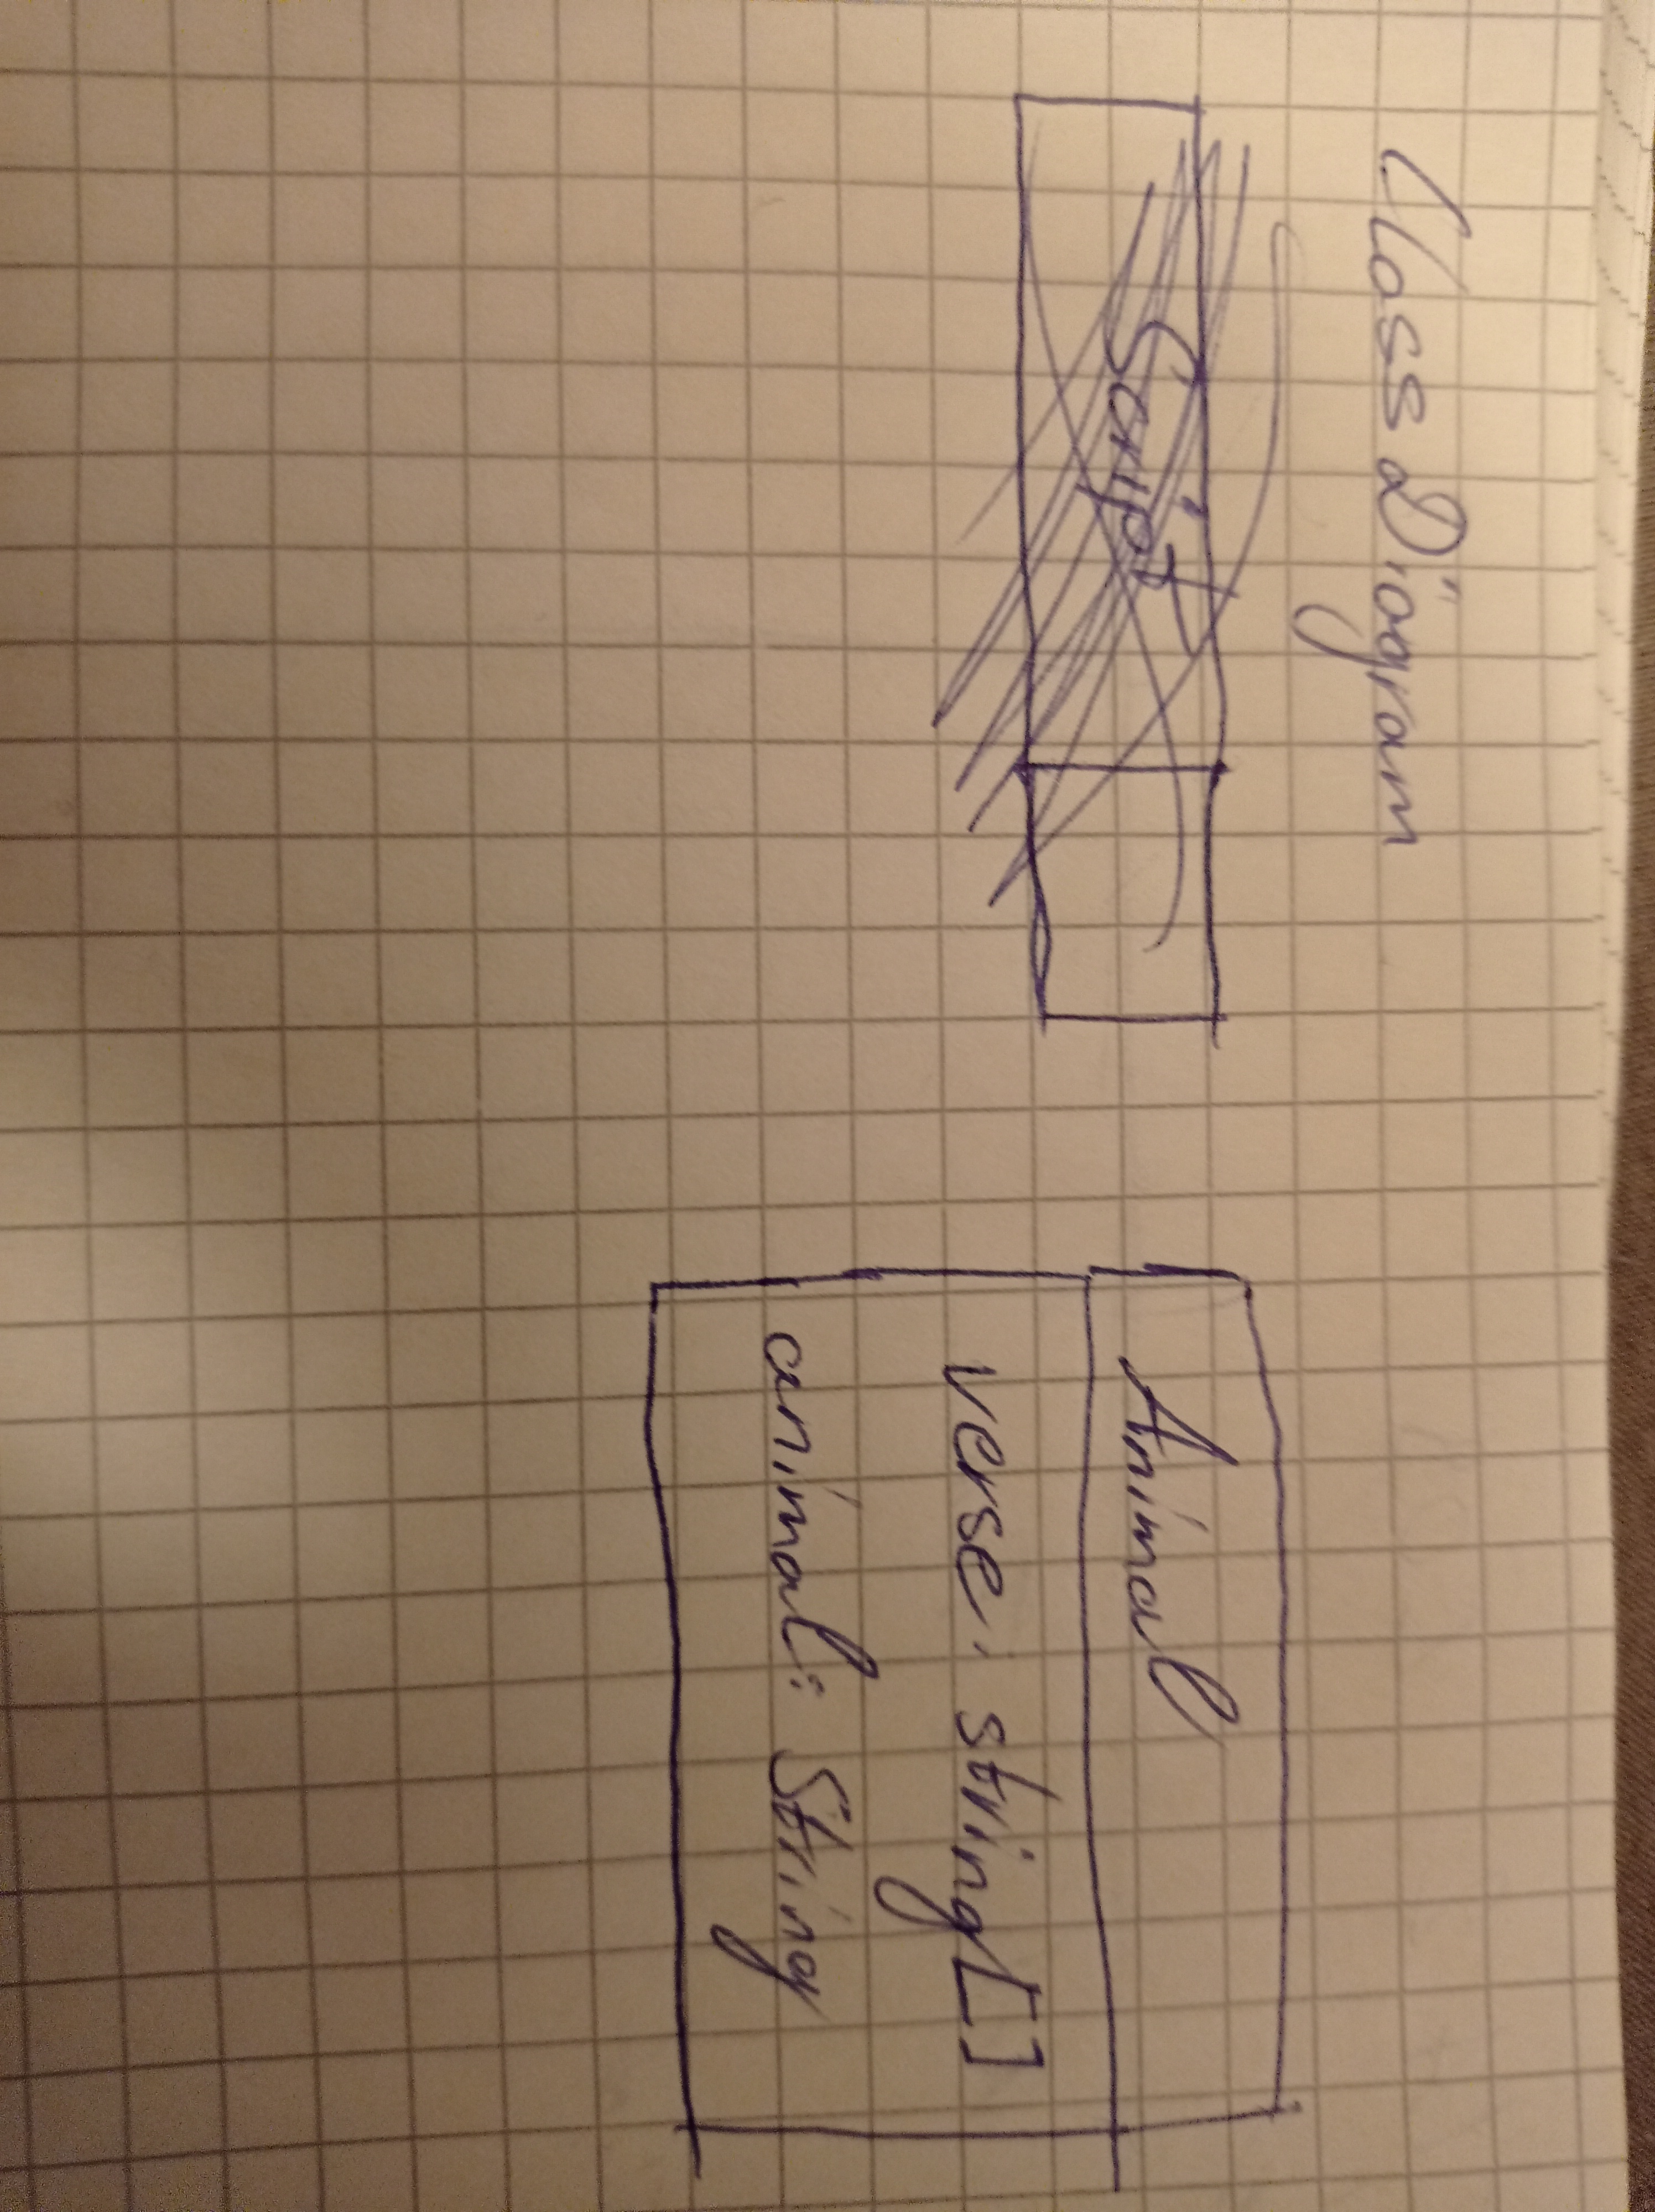 Class Diagram
Script
Animal
verse: string[]
animal: String